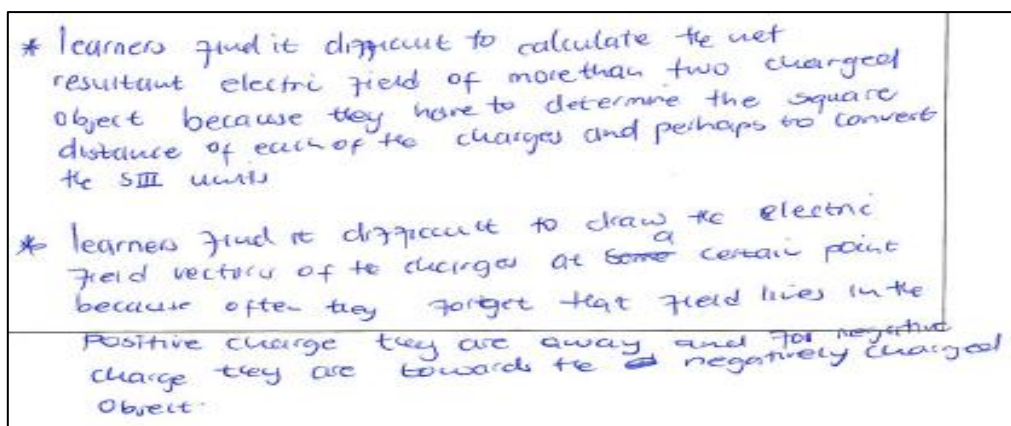 * learners find it difficult to calculate the net
resultant electric field of more than two charged
object because they have to determine the square
distance of each of the charges and perhaps to convert
the SI units
* learners find it difficult to draw the electric
field vectors of the charges at a certain point
because often they forget that field lines in the
positive charge they are away and for negative
charge they are towards the negatively charged
object.